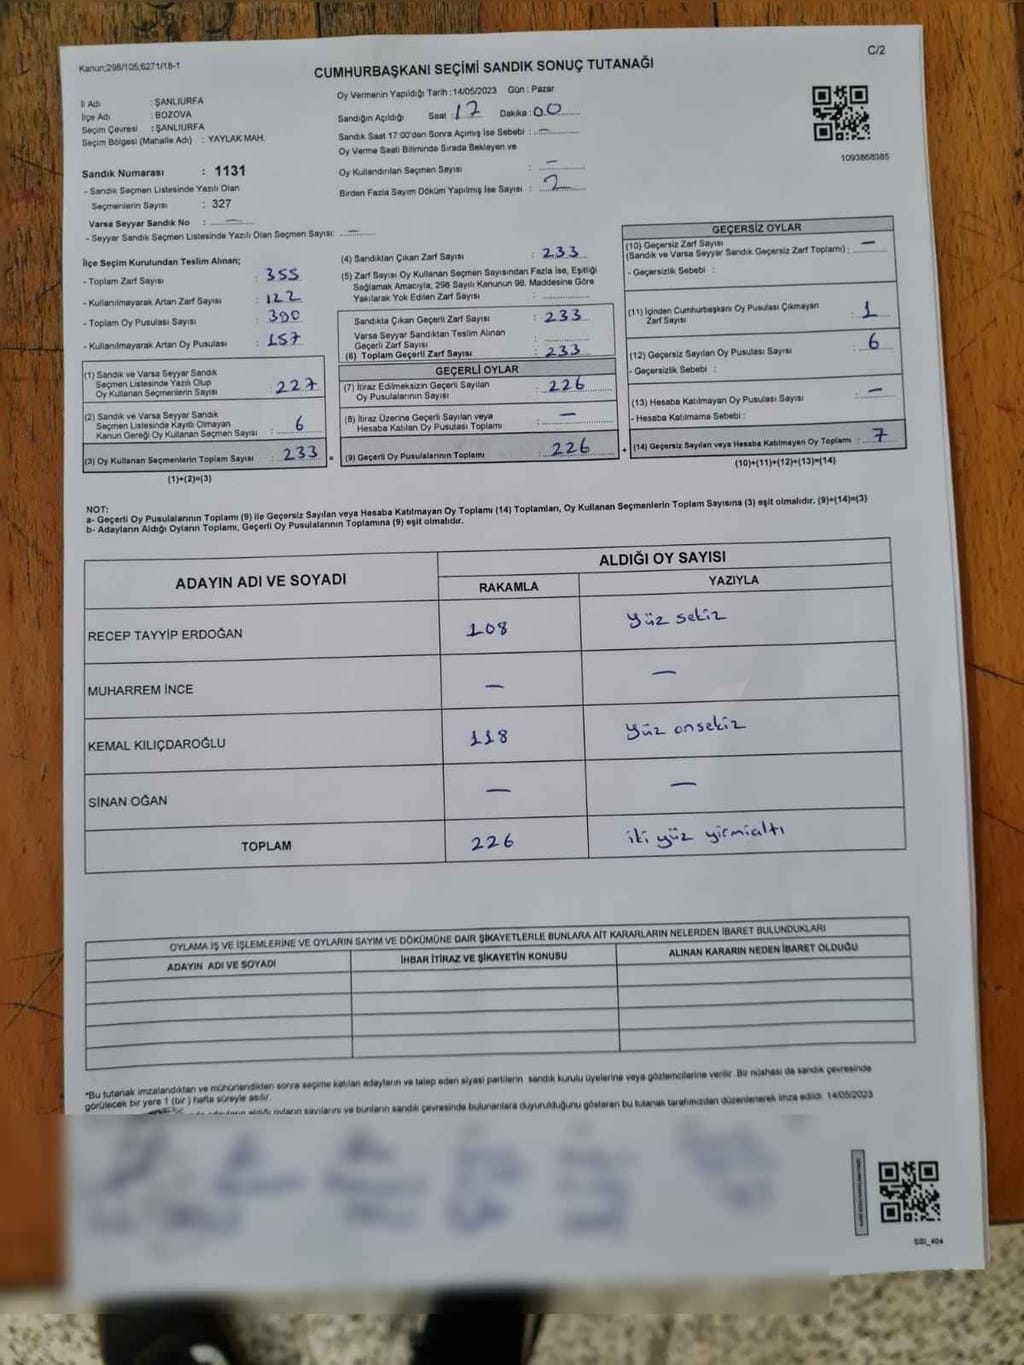 Kanun;298/105;6271/18-1
C/2
CUMHURBAŞKANI SEÇİMİ SANDIK SONUÇ TUTANAĞI
İl Adı : ŞANLIURFA
İlçe Adı : BOZOVA
Seçim Çevresi : ŞANLIURFA
Seçim Bölgesi (Mahalle Adı) : YAYLAK MAH.
Sandık Numarası : 1131
- Sandık Seçmen Listesinde Yazılı Olan
Seçmenlerin Sayısı : 327
Varsa Seyyar Sandık No : —
- Seyyar Sandık Seçmen Listesinde Yazılı Olan Seçmen Sayısı: —
Oy Vermenin Yapıldığı Tarih : 14/05/2023 Gün : Pazar
Sandığın Açıldığı Saat : 17 Dakika : 00
Sandık Saat 17:00'den Sonra Açımış İse Sebebi : —
Oy Verme Saati Bitiminde Sırada Bekleyen ve
Oy Kullandırılan Seçmen Sayısı : —
Birden Fazla Sayım Döküm Yapılmış İse Sayısı : 2
1093868385
İlçe Seçim Kurulundan Teslim Alınan;
- Toplam Zarf Sayısı : 355
- Kullanılmayarak Artan Zarf Sayısı : 122
- Toplam Oy Pusulası Sayısı : 390
- Kullanılmayarak Artan Oy Pusulası : 157
(1) Sandık ve Varsa Seyyar Sandık
Seçmen Listesinde Yazılı Olup
Oy Kullanan Seçmenlerin Sayısı : 227
(2) Sandık ve Varsa Seyyar Sandık
Seçmen Listesinde Kayıtlı Olmayan
Kanun Gereği Oy Kullanan Seçmen Sayısı : 6
(3) Oy Kullanan Seçmenlerin Toplam Sayısı : 233 =
(1)+(2)=(3)
(4) Sandıktan Çıkan Zarf Sayısı : 233
(5) Zarf Sayısı Oy Kullanan Seçmen Sayısından Fazla İse, Eşitliği
Sağlamak Amacıyla; 298 Sayılı Kanunun 98. Maddesine Göre
Yakılarak Yok Edilen Zarf Sayısı :
Sandıkta Çıkan Geçerli Zarf Sayısı : 233
Varsa Seyyar Sandıktan Teslim Alınan
Geçerli Zarf Sayısı :
(6) Toplam Geçerli Zarf Sayısı : 233
GEÇERLİ OYLAR
(7) İtiraz Edilmeksizin Geçerli Sayılan
Oy Pusulalarının Sayısı : 226
(8) İtiraz Üzerine Geçerli Sayılan veya
Hesaba Katılan Oy Pusulası Toplamı : —
(9) Geçerli Oy Pusulalarının Toplamı : 226 +
GEÇERSİZ OYLAR
(10) Geçersiz Zarf Sayısı
(Sandık ve Varsa Seyyar Sandık Geçersiz Zarf Toplamı) : —
- Geçersizlik Sebebi :
(11) İçinden Cumhurbaşkanı Oy Pusulası Çıkmayan
Zarf Sayısı : 1
(12) Geçersiz Sayılan Oy Pusulası Sayısı : 6
- Geçersizlik Sebebi :
(13) Hesaba Katılmayan Oy Pusulası Sayısı : —
- Hesaba Katılmama Sebebi :
(14) Geçersiz Sayılan veya Hesaba Katılmayan Oy Toplamı : 7
(10)+(11)+(12)+(13)=(14)
NOT:
a- Geçerli Oy Pusulalarının Toplamı (9) ile Geçersiz Sayılan veya Hesaba Katılmayan Oy Toplamı (14) Toplamları, Oy Kullanan Seçmenlerin Toplam Sayısına (3) eşit olmalıdır. (9)+(14)=(3)
b- Adayların Aldığı Oyların Toplamı, Geçerli Oy Pusulalarının Toplamına (9) eşit olmalıdır.
ADAYIN ADI VE SOYADI
ALDIĞI OY SAYISI
RAKAMLA YAZIYLA
RECEP TAYYİP ERDOĞAN 108 yüz sekiz
MUHARREM İNCE — —
KEMAL KILIÇDAROĞLU 118 yüz onsekiz
SİNAN OĞAN — —
TOPLAM 226 iki yüz yirmialtı
OYLAMA İŞ VE İŞLEMLERİNE VE OYLARIN SAYIM VE DÖKÜMÜNE DAİR ŞİKAYETLERLE BUNLARA AİT KARARLARIN NELERDEN İBARET BULUNDUKLARI
ADAYIN ADI VE SOYADI İHBAR İTİRAZ VE ŞİKAYETİN KONUSU ALINAN KARARIN NEDEN İBARET OLDUĞU
*Bu tutanak imzalandıktan ve mühürlendikten sonra seçime katılan adayların ve talep eden siyasi partilerin sandık kurulu üyelerine veya gözlemcilerine verilir. Bir nüshası da sandık çevresinde
görülecek bir yere 1 (bir) hafta süreyle asılır.
adayların aldığı oyların sayılarını ve bunların sandık çevresinde bulunanlara duyurulduğunu gösteren bu tutanak tarafımızdan düzenlenerek imza edildi. 14/05/2023
SSI_404